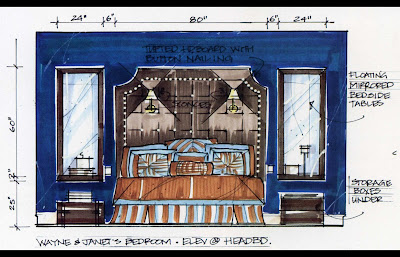 24"
6"
80"
6"
24"
TUFTED HEADBOARD WITH
BUTTON NAILING
SCONCES
FLOATING
MIRRORED
BEDSIDE
TABLES
60"
STORAGE
BOXES
UNDER
25"
WAYNE & JANET'S BEDROOM · ELEV @ HEADBD.